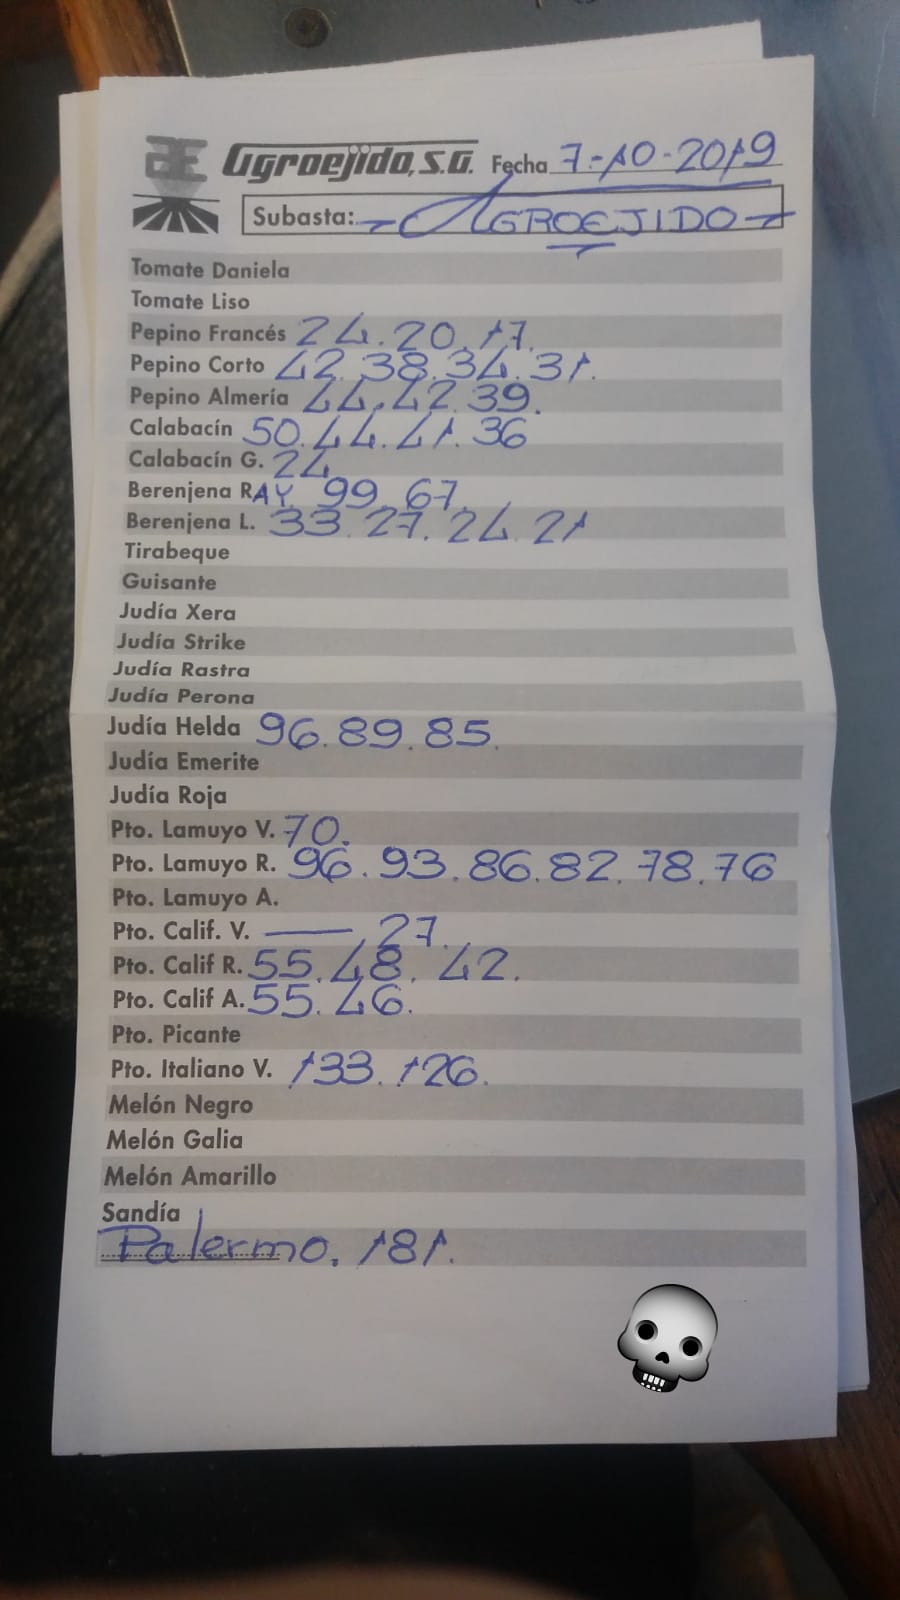 Æ Agroejido, S.G. Fecha 7-10-2019
Subasta: AGROEJIDO
Tomate Daniela
Tomate Liso
Pepino Francés 24.20.17.
Pepino Corto 42.38.34.31.
Pepino Almería 44.42.39.
Calabacín 50.44.41.36
Calabacín G. 24
Berenjena RAY. 99.67.
Berenjena L. 33.27.24.21
Tirabeque
Guisante
Judía Xera
Judía Strike
Judía Rastra
Judía Perona
Judía Helda 96.89.85.
Judía Emerite
Judía Roja
Pto. Lamuyo V. 70.
Pto. Lamuyo R. 96.93.86.82.78.76
Pto. Lamuyo A.
Pto. Calif. V. — 27.
Pto. Calif R. 55.48.42.
Pto. Calif A. 55.46.
Pto. Picante
Pto. Italiano V. 133.126.
Melón Negro
Melón Galia
Melón Amarillo
Sandía
Palermo. 181.